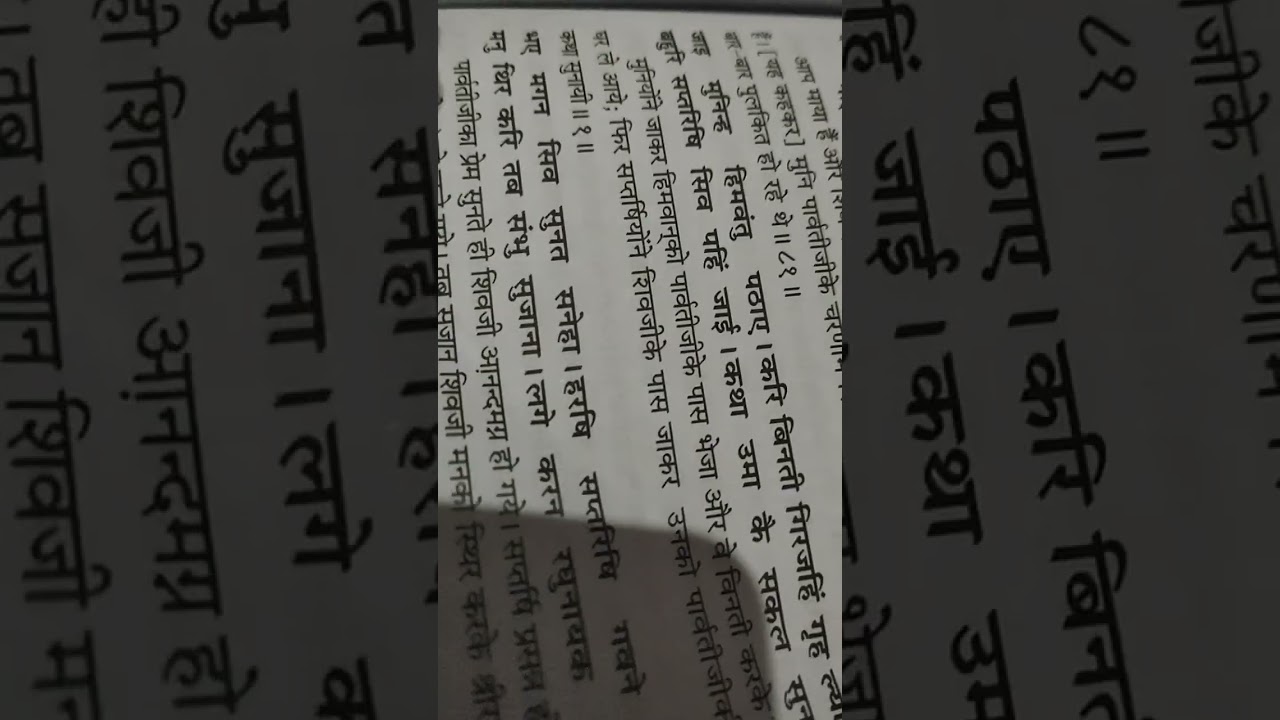 आप माया हैं और
हैं। [यह कहकर] मुनि पार्वतीजीके चरणोंमें
बार-बार पुलकित हो रहे थे॥ ८१॥
जाइ मुनिन्ह हिमवंतु पठाए। करि बिनती गिरजहिं गृह ल्या
बहुरि सप्तरिषि सिव पहिं जाई। कथा उमा कै सकल सुन
मुनियोंने जाकर हिमवान्‌को पार्वतीजीके पास भेजा और वे विनती करके
घर ले आये; फिर सप्तर्षियोंने शिवजीके पास जाकर उनको पार्वतीजीकी
कथा सुनायी॥ १॥
भए मगन सिव सुनत सनेहा। हरषि सप्तरिषि गवने
मनु थिर करि तब संभु सुजाना। लगे करन रघुनायक
पार्वतीजीका प्रेम सुनते ही शिवजी आनन्दमग्न हो गये। सप्तर्षि प्रसन्न
तब सुजान शिवजी मनको स्थिर करके